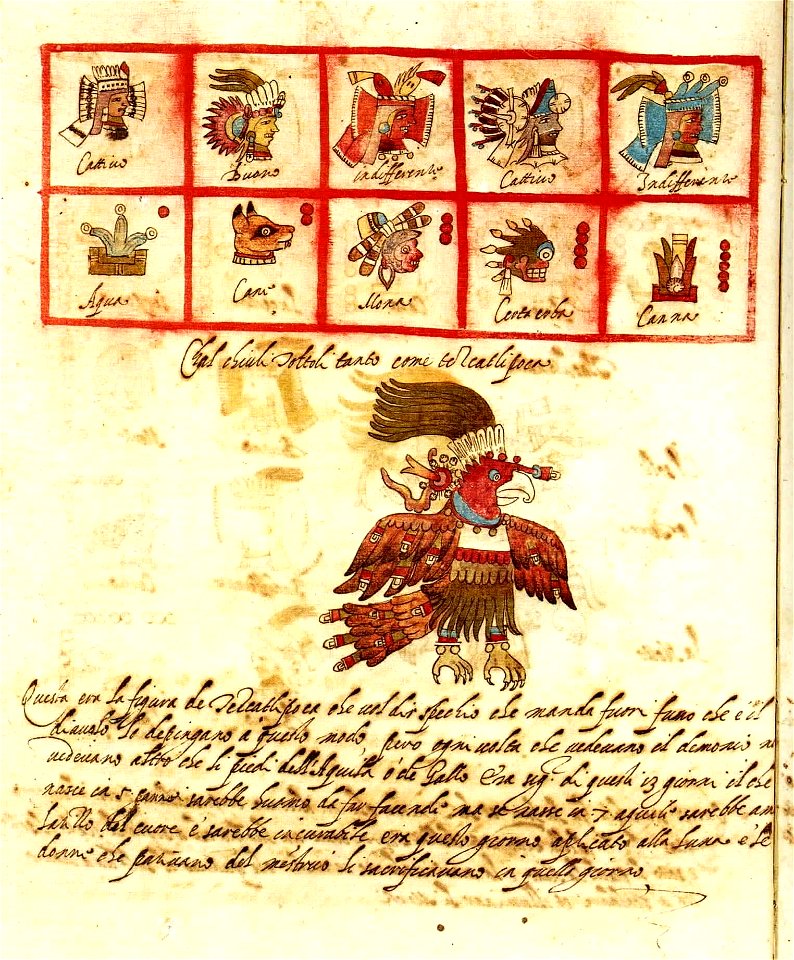 Cattivo
Buono
indifferente
Cattivo
Indifferente
Aqua
Cane
Mona
Certa erba
Canna
Chal chiuli totoli tanto come tezcatlipoca
Questa era la figura de Tezcatlipoca che vol dir specchio che manda fuori fumo che è il
diavolo lo depingano à questo modo, però ogni volta che vedevano il demonio
vedevano altro che li piedi dell'Aquila ó de Gallo Era sigr. di questi 13 giorni il che
nasce in 5 canne sarebbe huomo da far facende ma se nasce in 7 aquile sarebbe am
del cuore è sarebbe incurabile era questo giorno aplicato alla Luna è le
donne che pativano del mestruo si sacrificavano in quello giorno